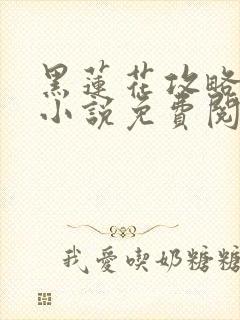 黑蓮花攻略
小說免費閱
我愛喫奶糖糖